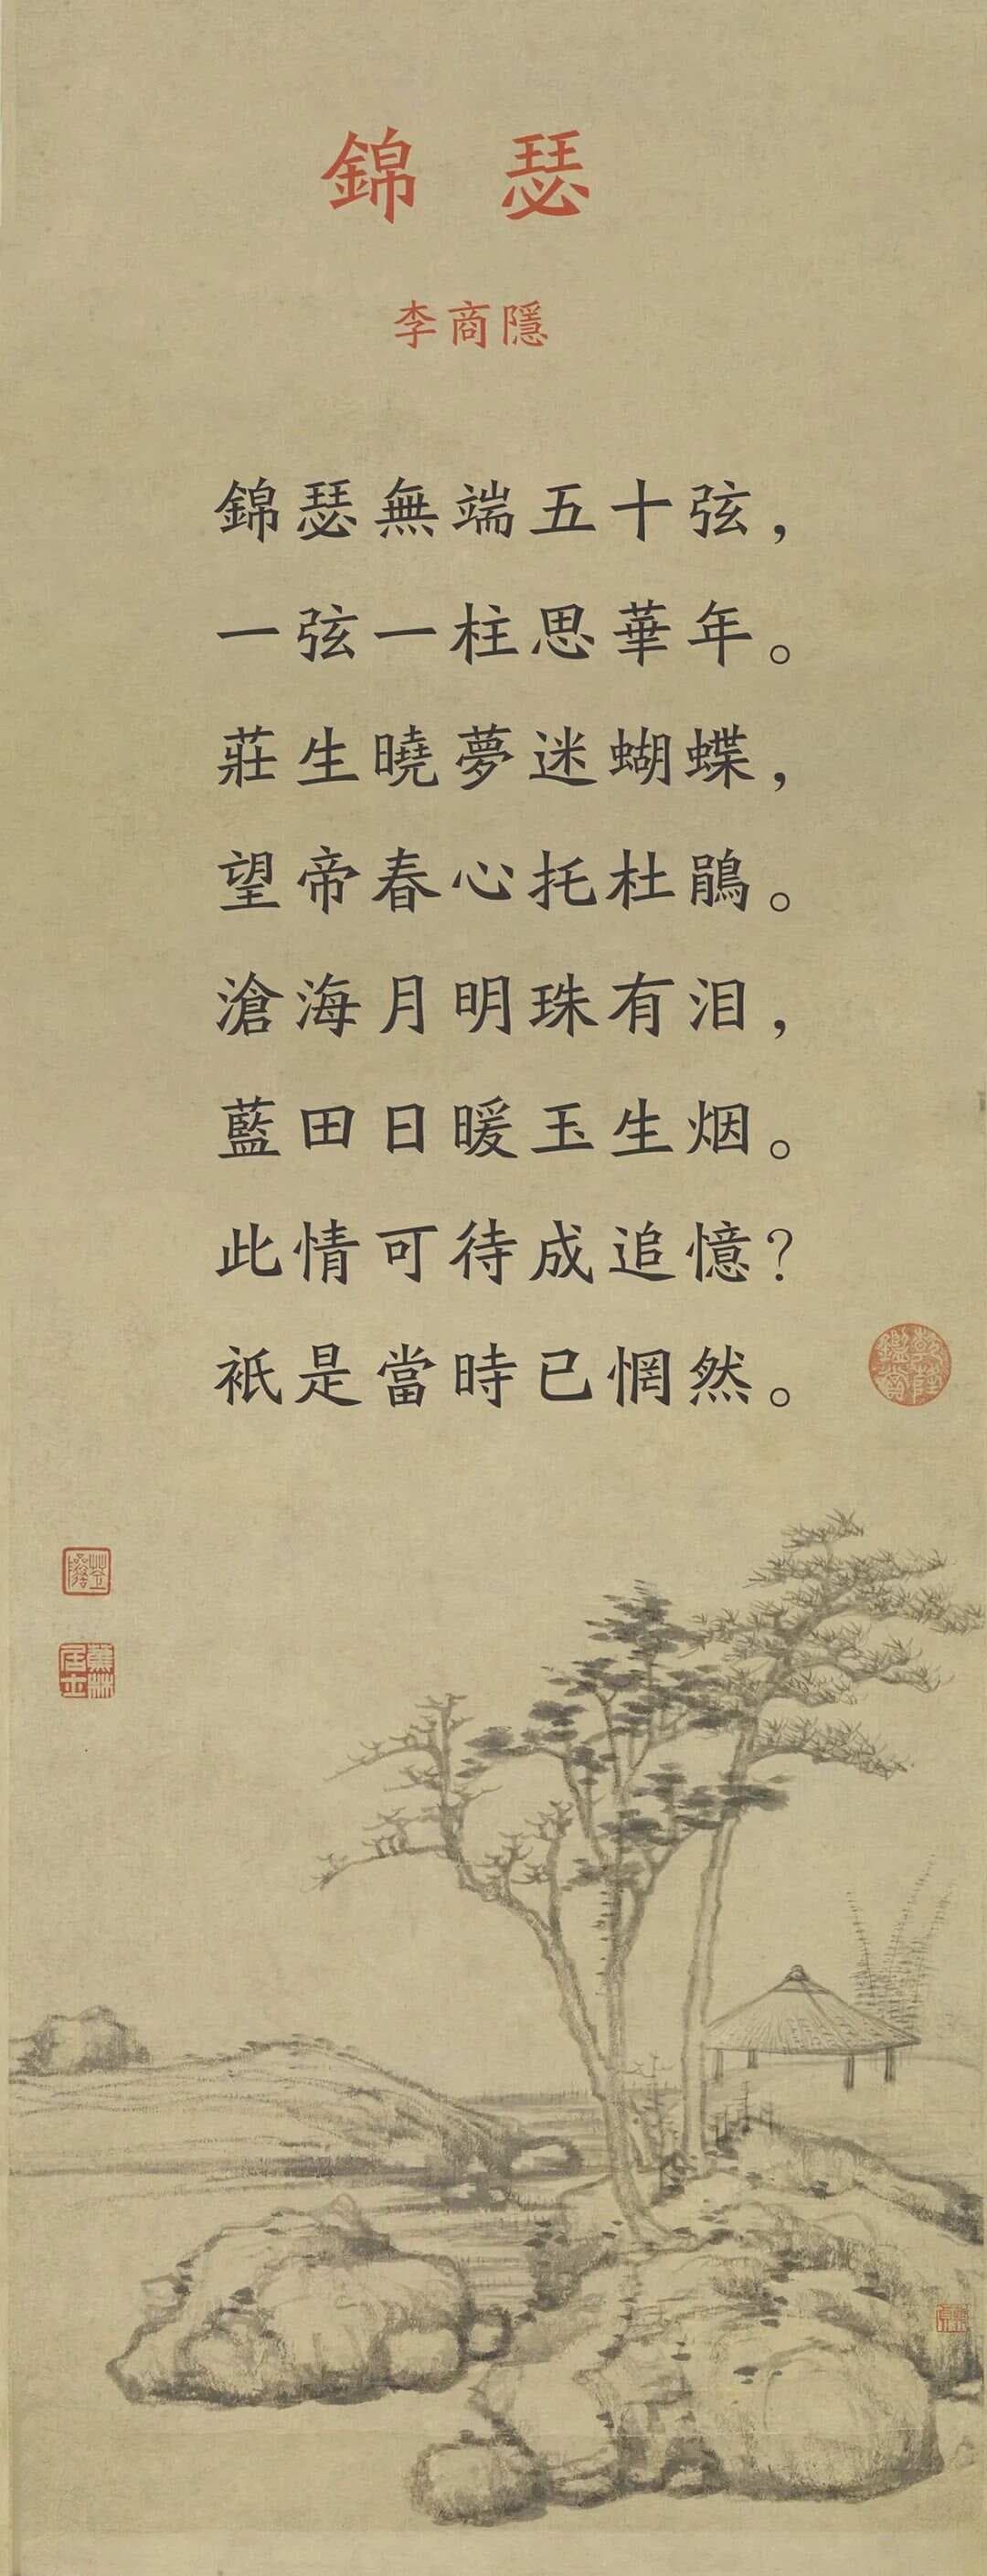 錦瑟
李商隱
錦瑟無端五十弦，
一弦一柱思華年。
莊生曉夢迷蝴蝶，
望帝春心托杜鵑。
滄海月明珠有泪，
藍田日暖玉生烟。
此情可待成追憶？
祇是當時已惘然。
蕉林
居士